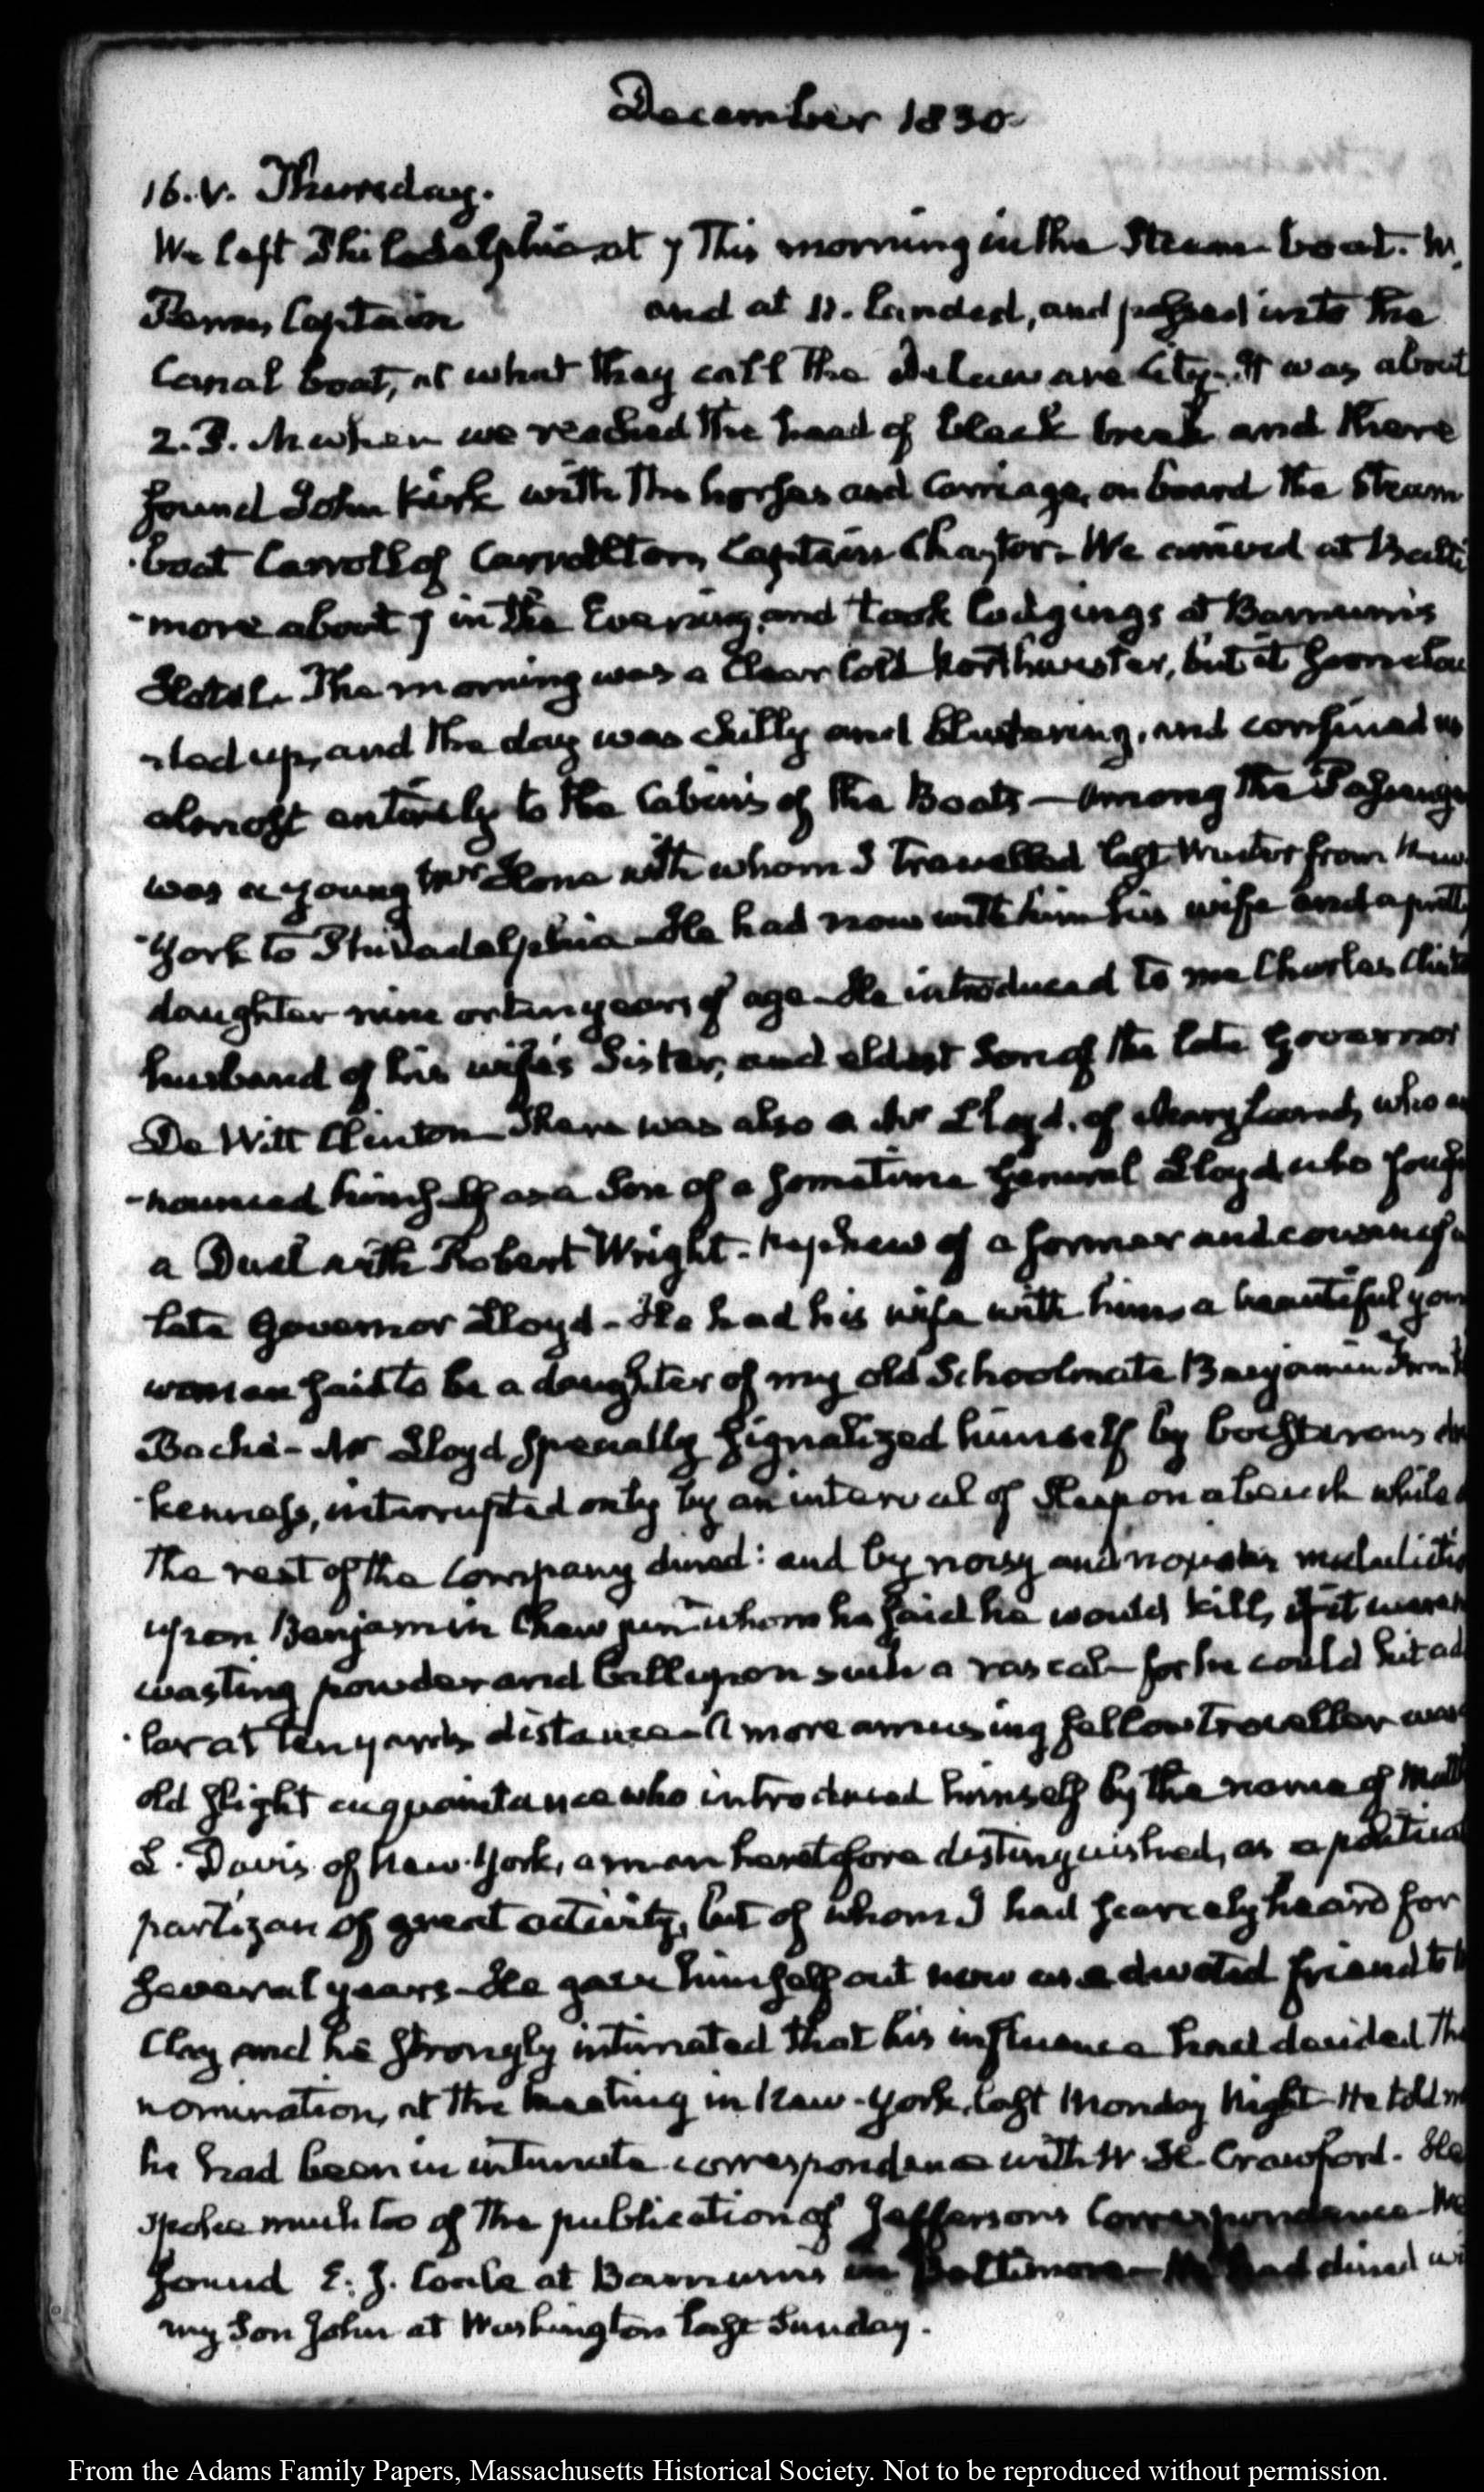 December 1830
16. V. Thursday.
We left Philadelphia at 7 this morning in the Steam-boat. W.
Penn, Captain and at 12. landed, and passed into the
Canal boat, at what they call the Delaware City. It was about
2. P.M when we reached the head of black creek and there
found John Kirk with the horses and Carriage, on board the Steam
boat Carroll of Carrollton, Captain Chaytor. We arrived at Balti
-more about 7 in the Evening, and took lodgings at Barnum's
Hotel. The morning was a clear cold Northwester, but it soon clou
-ded up, and the day was chilly and blustering, and confined us
almost entirely to the Cabins of the Boats — Among the Passenge
was a young Mr Hone with whom I travelled last Winter from New
York to Philadelphia - He had now with him his wife and a pretty
daughter nine or ten years of age - He introduced to me Charles Clint
husband of his wife's Sister, and eldest Son of the late Governor
De Witt Clinton - There was also a Mr Lloyd, of Maryland, who a
-nounced himself as a Son of a sometime General Lloyd who fough
a Duel with Robert Wright - Nephew of a former and cousin of a
late Governor Lloyd - He had his wife with him a beautiful youn
woman said to be a daughter of my old Schoolmate Benjamin Frankl
Bache - Mr Lloyd specially signalized himself by boisterous drun
kenness, interrupted only by an interval of sleep on a bench while
the rest of the Company dined: and by noisy and maledictio
upon Benjamin Chew junr whom he said he would kill, if it were n
wasting powder and ball upon such a rascal - for he could hit a d
lar at ten yards distance - A more amusing fellow traveller was
old slight acquaintance who introduced himself by the name of Matt
L. Davis of New-York, a man heretofore distinguished, as a political
partizan of great activity, but of whom I had scarcely heard for
several years - He gave himself out now as a devoted friend to
Clay and he strongly intimated that his influence had decided the
nomination, at the meeting in New-York, last Monday Night - He told m
he had been in intimate correspondence with W. H. Crawford. He
spoke much too of the publication of Jeffersons Correspondence - We
found E. J. Coale at Barnums in Baltimore - He had dined wi
my Son John at Washington last Sunday.
From the Adams Family Papers, Massachusetts Historical Society. Not to be reproduced without permission.